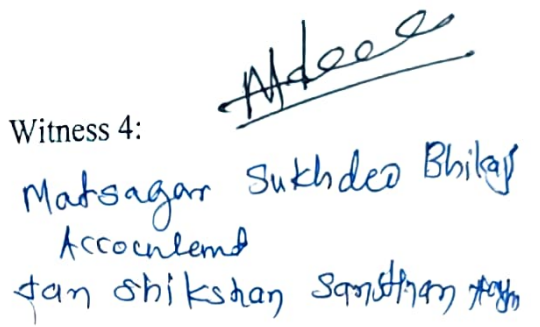 Witness 4:
Matsagar Sukhdeo Bhikaji
Accountemd
Jan Shikshan Sansthan